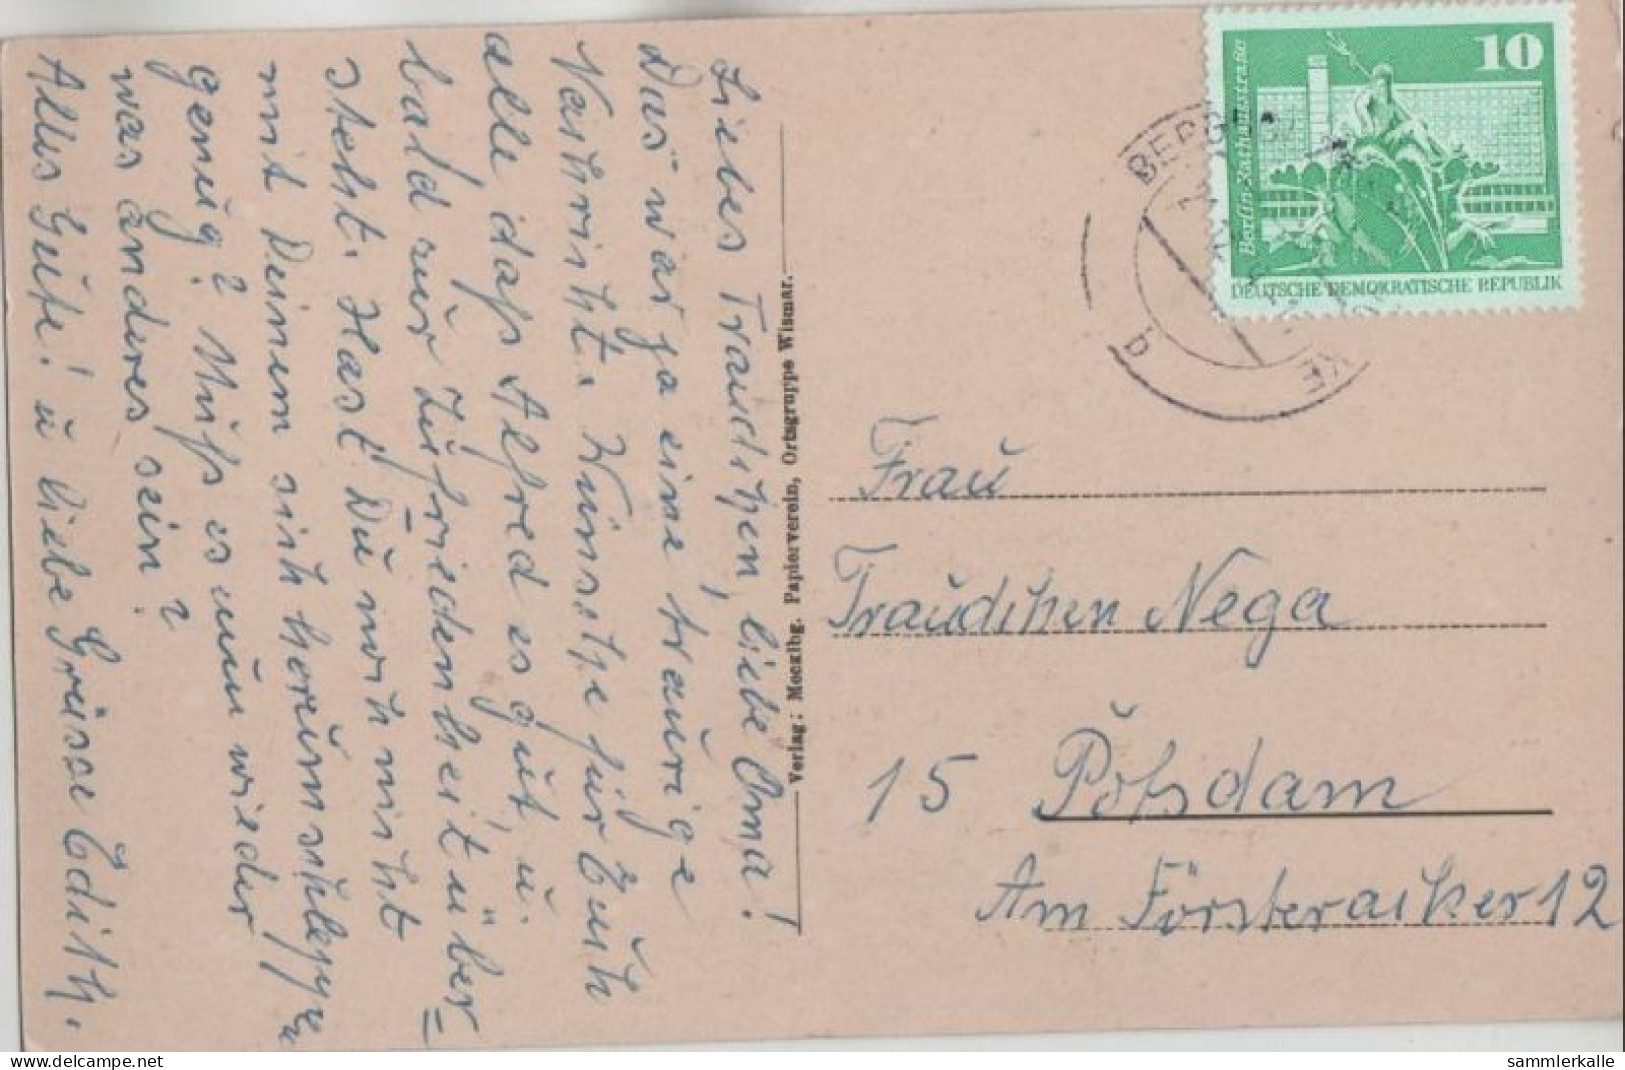 Liebes Traudchen, liebe Oma!
Das war ja eine traurige
Nachricht. Wünsche für Euch
alle, daß Alfred es gut, u.
bald zur Zufriedenheit über-
steht. Hast Du noch nicht
mit Deinem sich herumschleppen
genug? Muß es nun wieder
was anderes sein?
Alles Gute! u liebe Grüsse Edith.
Verlag: Mecklbg. Papierverein, Ortsgruppe Wismar.
10
Berlin-Rathausstraße
DEUTSCHE DEMOKRATISCHE REPUBLIK
BERG
KE
b
Frau
Traudchen Nega
15 Potsdam
Am Försteracker 12
delcampe.net
sammlerkalle